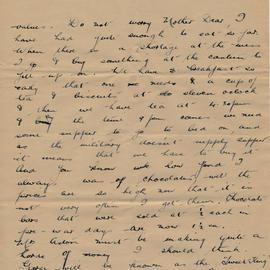 values. Do not worry Mother dear, I
have had quite enough to eat so far.
When there is a shortage at the mess
I go & buy something at the canteen to
fill up on. We have breakfast
early that one needs a cup of
tea & biscuits at do eleven oclock
& then we have tea at 4.30pm
& by the time 9 pm came we need
some supper to go to bed on, and
as the military doesn't supply supper
it means that we have to buy it
And you know how fond I
always was of chocolates, well the
prices are so high now that it is
not very often I get them. Chocolate
bars that were sold at ½ each in
pre-war day are now 1½.
must be making quite a
horde of money I should think.
will be known as the Sweet King